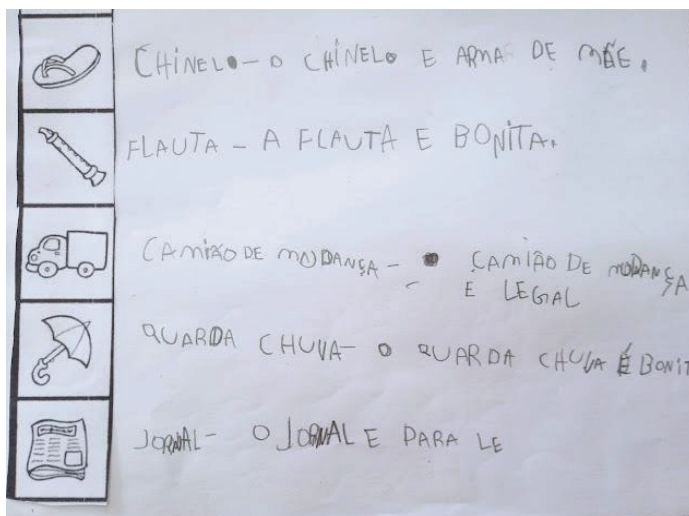 CHINELO - O CHINELO E ARMA DE MÃE.
FLAUTA - A FLAUTA E BONITA.
CAMIÃO DE MUDANÇA - O CAMIÃO DE MUDANÇA
E LEGAL
QUARDA CHUVA - O QUARDA CHUVA É BONIT
JORNAL - O JORNAL E PARA LE